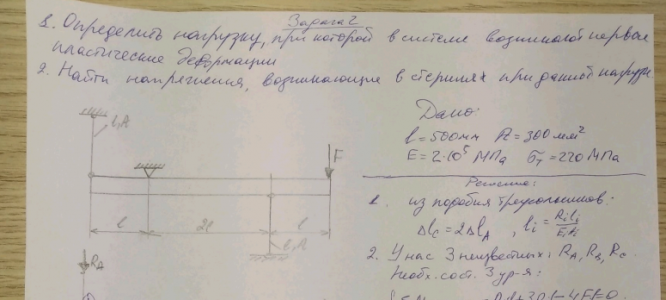 Задача 2
1. Определить нагрузку, при которой в системе возникают первые
пластические деформации
2. Найти напряжения, возникающие в стержнях при данной нагрузке
Дано:
l = 500 мм A = 300 мм²
E = 2·10⁵ МПа σт = 220 МПа
l, A
F
l 2l l
l, A
RA
Решение:
1. из подобия треугольников:
Δlc = 2ΔlA, li = Rili/EFi
2. У нас 3 неизвестных: RA, RB, RC
Необх. сост. 3 ур-я: